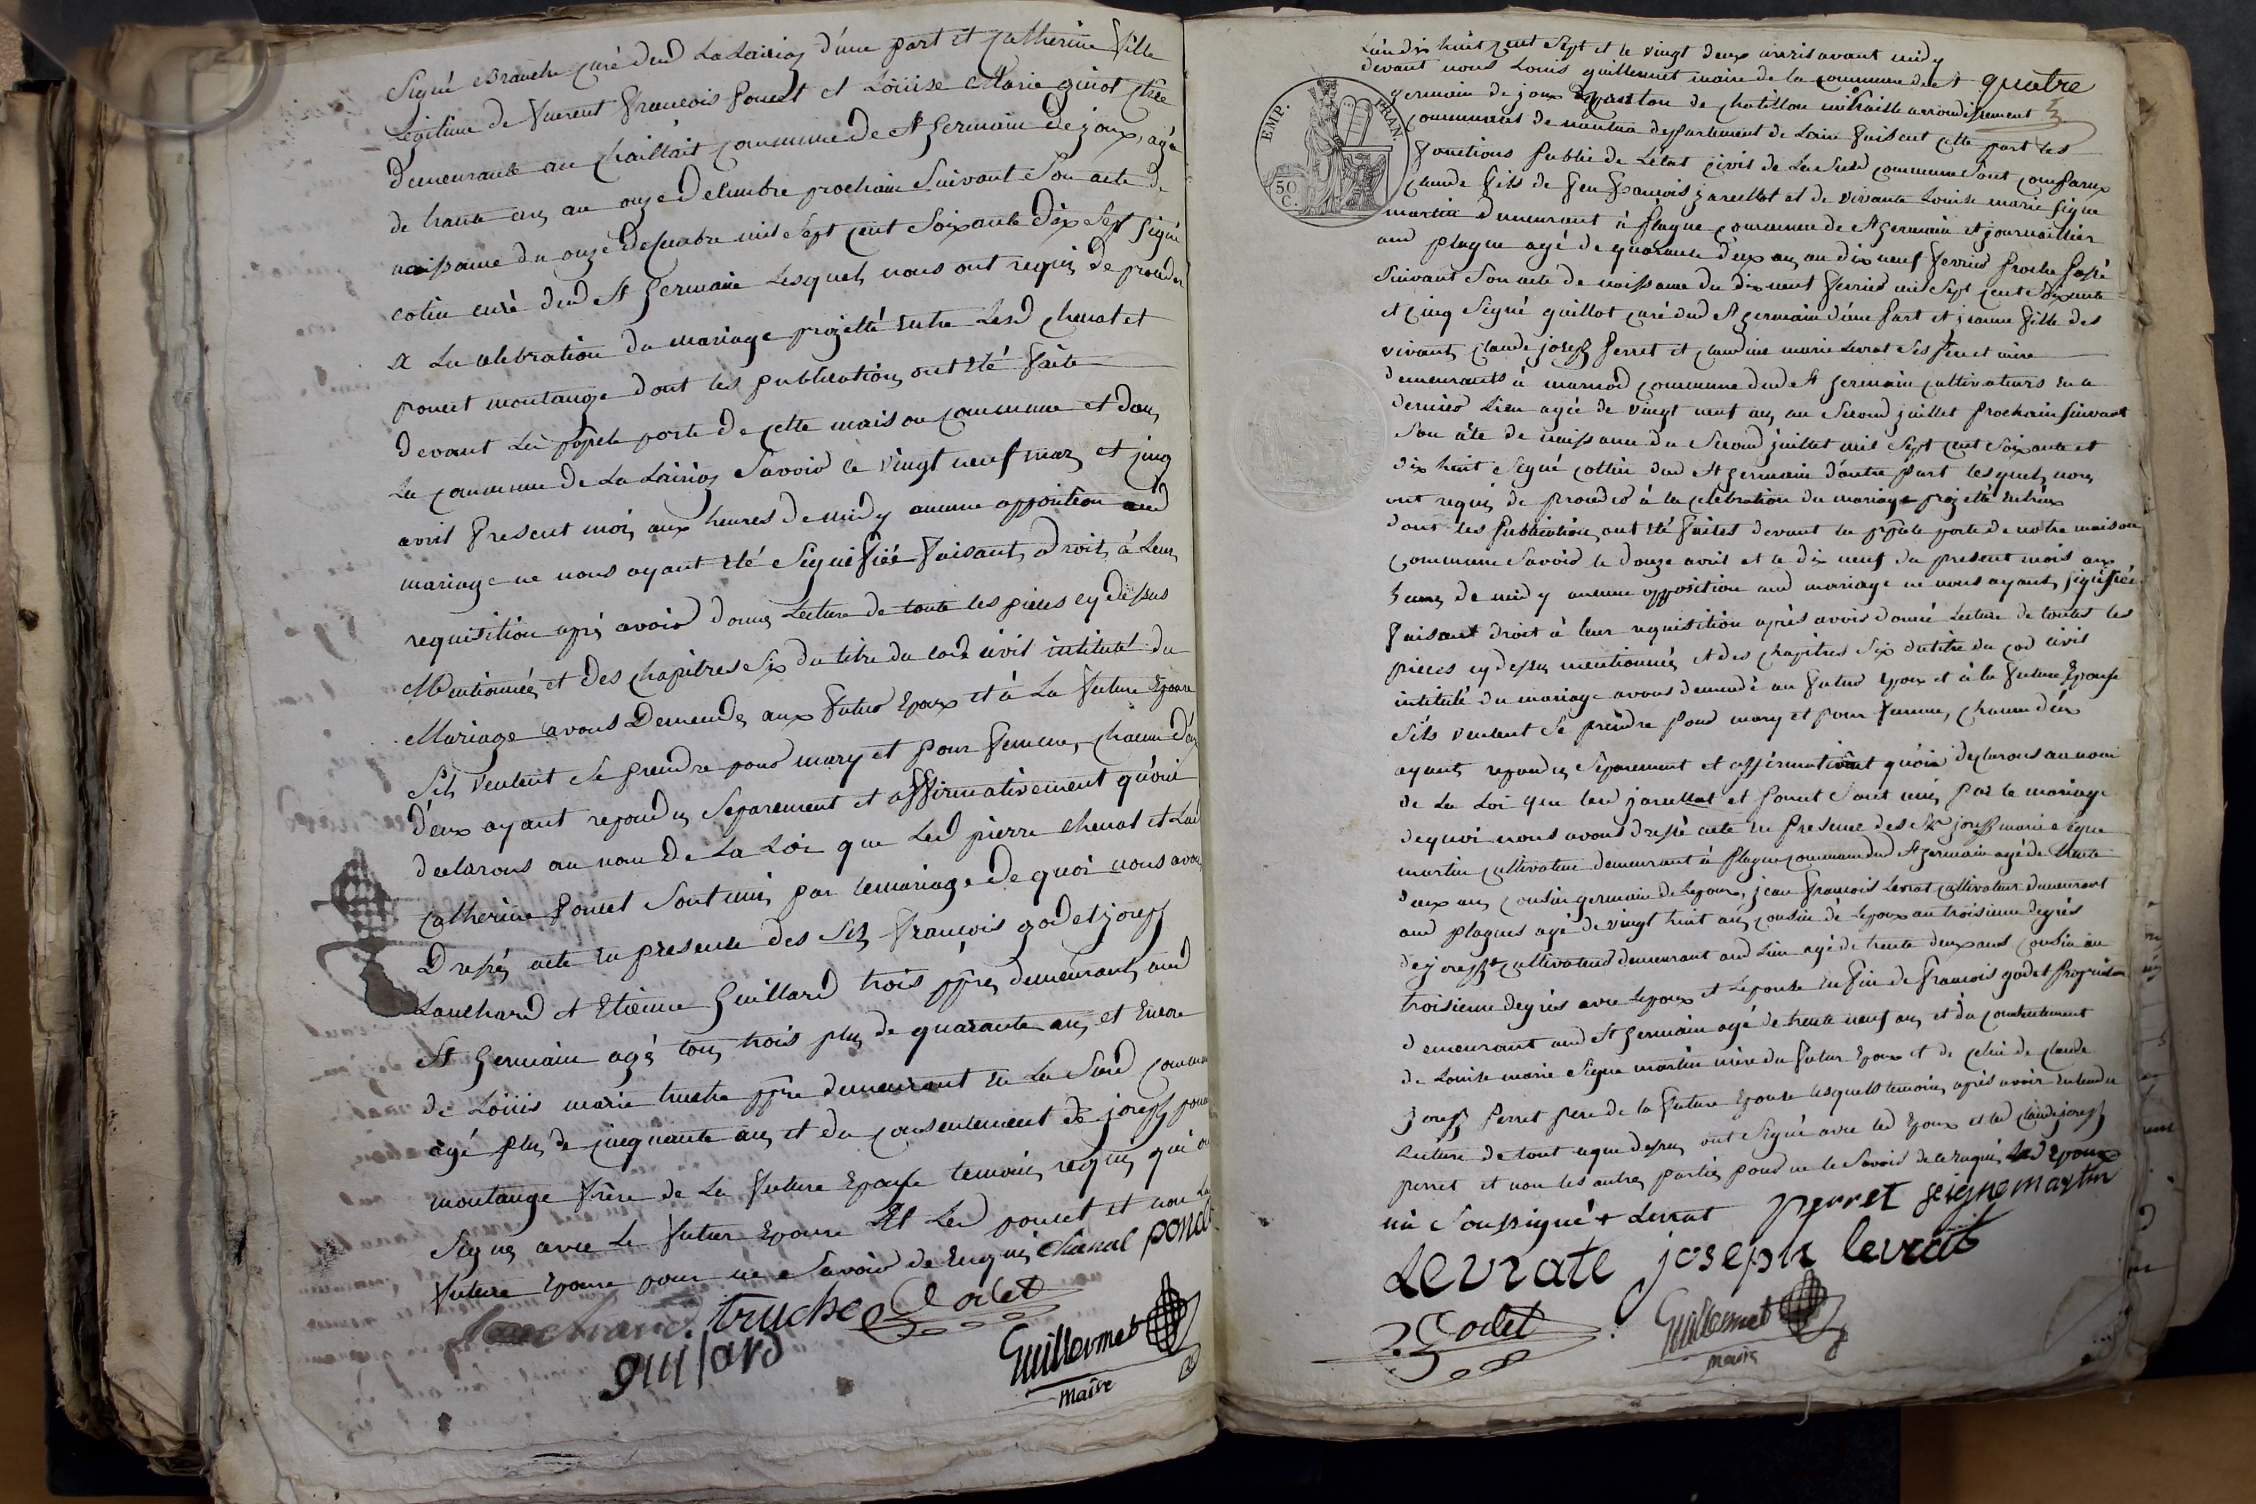 Signé Branche curé dud La Lairiaz d'une part et Catherine fille
Legitime de Vincent francois poncet et Louïse Marie ginot
demeurante au Chaillait commune de St Germain de joux, agée
de trente ans au onze decembre prochain Suivant Son acte de
naissance du onze decembre mil Sept cent Soixante dix Sept Signé
cotin curé dud St Germain Lesquels nous ont requis de proceder
a La celebration du mariage projetté entre Lesd Chenal et
poncet montange dont les publications ont été faite
devant La pple porte de cette maison commune et dans
La commune de La Lairiaz Savoir le vingt neuf mars et cinq
avril present mois aux heures de midy aucune opposition aud
mariage ne nous ayant été Signifiée faisant droit à Leur
requisition après avoir donnés Lecture de toute les pieces cy dessus
Mentionnées et des chapitres Six du titre du code civil intitulé du
Mariage avons Demandés aux futur Epoux et à La future Epouse
S'ils veulent Se prendre pour mary et pour femme, chacun d'eux
d'eux ayant repondus Separement et affirmativement qu'oui
declarons au nom De La Loi que Led pierre chenal et Lad
Catherine poncet Sont unis par le mariage de quoi nous avons
Dressés acte en presence des Srs francois godet joseph
Lauchard et Etienne Guillard trois ppres demeurants aud
St Germain agés tous trois plus de quarante ans et Encore
de Loüis marie truche ppre demeurant en La Susd commune
agé plus de cinquante ans et du consentement de joseph poncet
montange frère de La future Epouse temoins requis qui ont
Signés avec Le futur Epoux Et Led poncet et non La
future Epouse pour ne Savoir de Enquis chenal poncet
Lauchard. truche Godet
guilard
Guillermet
maire
quatre
L'an dix huit cent Sept et le vingt deux avril avant midy
devant nous Louis guillermet maire de la commune de St
germain de joux canton de chatillon michaille arrondissement
communal de nantua departement de Lain faisant cette part les
fonctions Public de L'etat civil de La Susd commune Sont comparus
claude fils de feu francois jarullot et de vivante Louise marie Signe
martin demeurant à plagne commune de St germain et journaillier
aud plagne agé de quarante deux ans au dix neuf fevrier proche passé
Suivant Son acte de naissance du dix neuf fevrier mil Sept cent Soixante
et cinq Signé guillot curé dud St germain d'une part et jeanne fille des
vivants claude joseph perret et claudine marie Levrat Ses pere et mère
demeurants à marnod commune dud St germain cultivateurs en ce
dernier Lieu agée de vingt neuf ans au Second juillet prochain suivant
Son acte de naissance du Second juillet mil Sept cent Soixante et
dix huit Signé cottin dud St germain d'autre part lesquels nous
ont requis de proceder à la celebration du mariage projetté entreux
dont les publications ont été faites devant la pple porte de notre maison
commune Savoir le douze avril et le dix neuf du present mois aux
heures de midy aucune opposition aud mariage ne nous ayants signifiée
faisant droit à leur requisition après avoir donné Lecture de toutes les
pieces cy dessus mentionnés et des chapitres Six du titre du cod civil
intitulé du mariage avons demandé au futur epoux et à la future Epouse
S'ils veulent Se prendre pour mary et pour femme, chacun d'eux
ayants repondus Separement et affirmativement qu'oüi declarons au nom
de La Loi que led jarullot et poncet Sont unis par le mariage
de quoi nous avons dressé acte en presence des Srs joseph marie Signe
martin cultivateur demeurant à plagne commune dud St germain agé de trente
deux ans cousin germain de Lepoux, jean francois Levrat cultivateur demeurant
aud plagnes agé de vingt huit ans cousin de lepoux au troisieme degrés
de joseph cultivateur demeurant aud Lieu agé de trente deux ans cousin au
troisieme degrés avec lepoux et Lepouse En fin de francois godet proprietaire
demeurant aud St germain agé de trente neuf ans et du consentement
de Louise marie Signe martin mère du futur Epoux et de celui de claude
joseph perret pere de la future Epouse lesquels temoins après avoir Entendu
Lecture de tout ce que dessus ont Signé avec led Epoux et led claude joseph
perret et non les autres parties pour ne le Savoir de ce requis Led Epoux
ni Soussigné + Levrat perret seigne martin
Levrate joseph levrat
Godet
Guillermet
maire
EMP. FRAN
50
C.